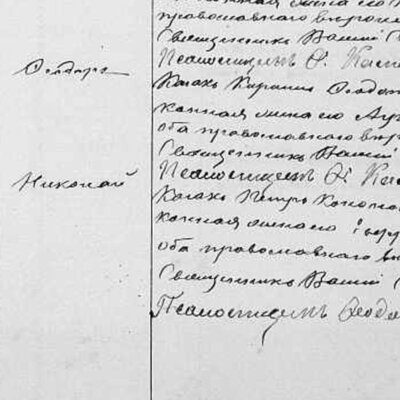 законная жена его
православнаго вѣроисп
Священникъ Василій
Псаломщикъ Ѳ.
Ѳеодоръ
Козакъ Кириллъ Ѳеодо
конная жена его
оба православнаго в
Священникъ Василій
Николай
Псаломщикъ Ѳ.
Козакъ Петръ Коно
конная жена его
оба православнаго в
Священникъ Василій
Псаломщикъ Ѳеодо